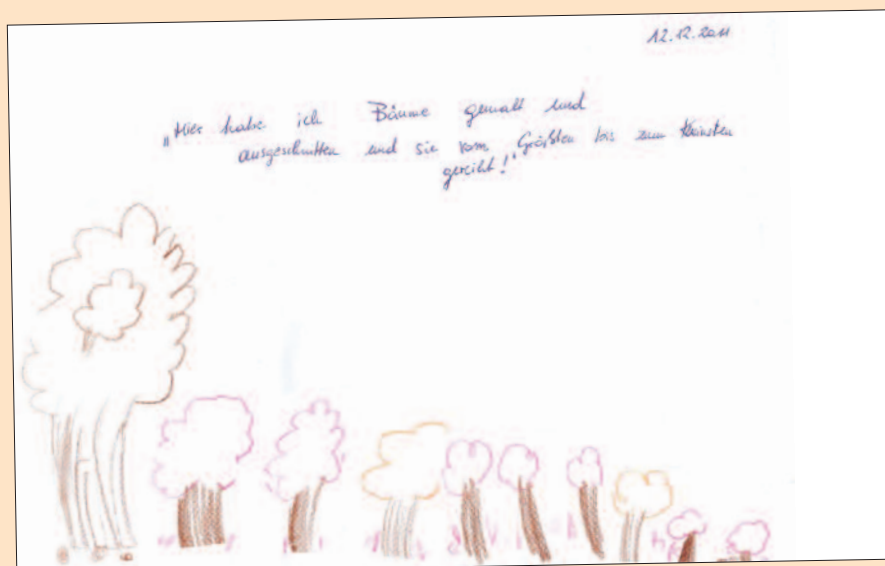 12.12.2011
„Hier habe ich Bäume gemalt und
ausgeschnitten und sie vom Größten bis zum Kleinsten
gereiht!“